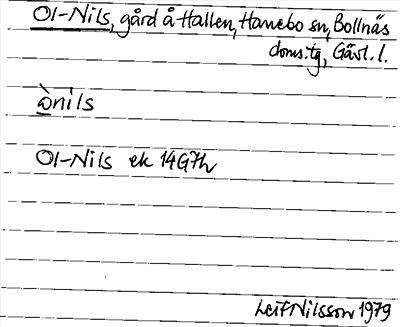 Ol-Nils, gård å Hallen, Hanebo sn, Bollnäs
doms.tg, Gävl. l.
ὰnils
Ol-Nils ek 14G7h
Leif Nilsson 1979